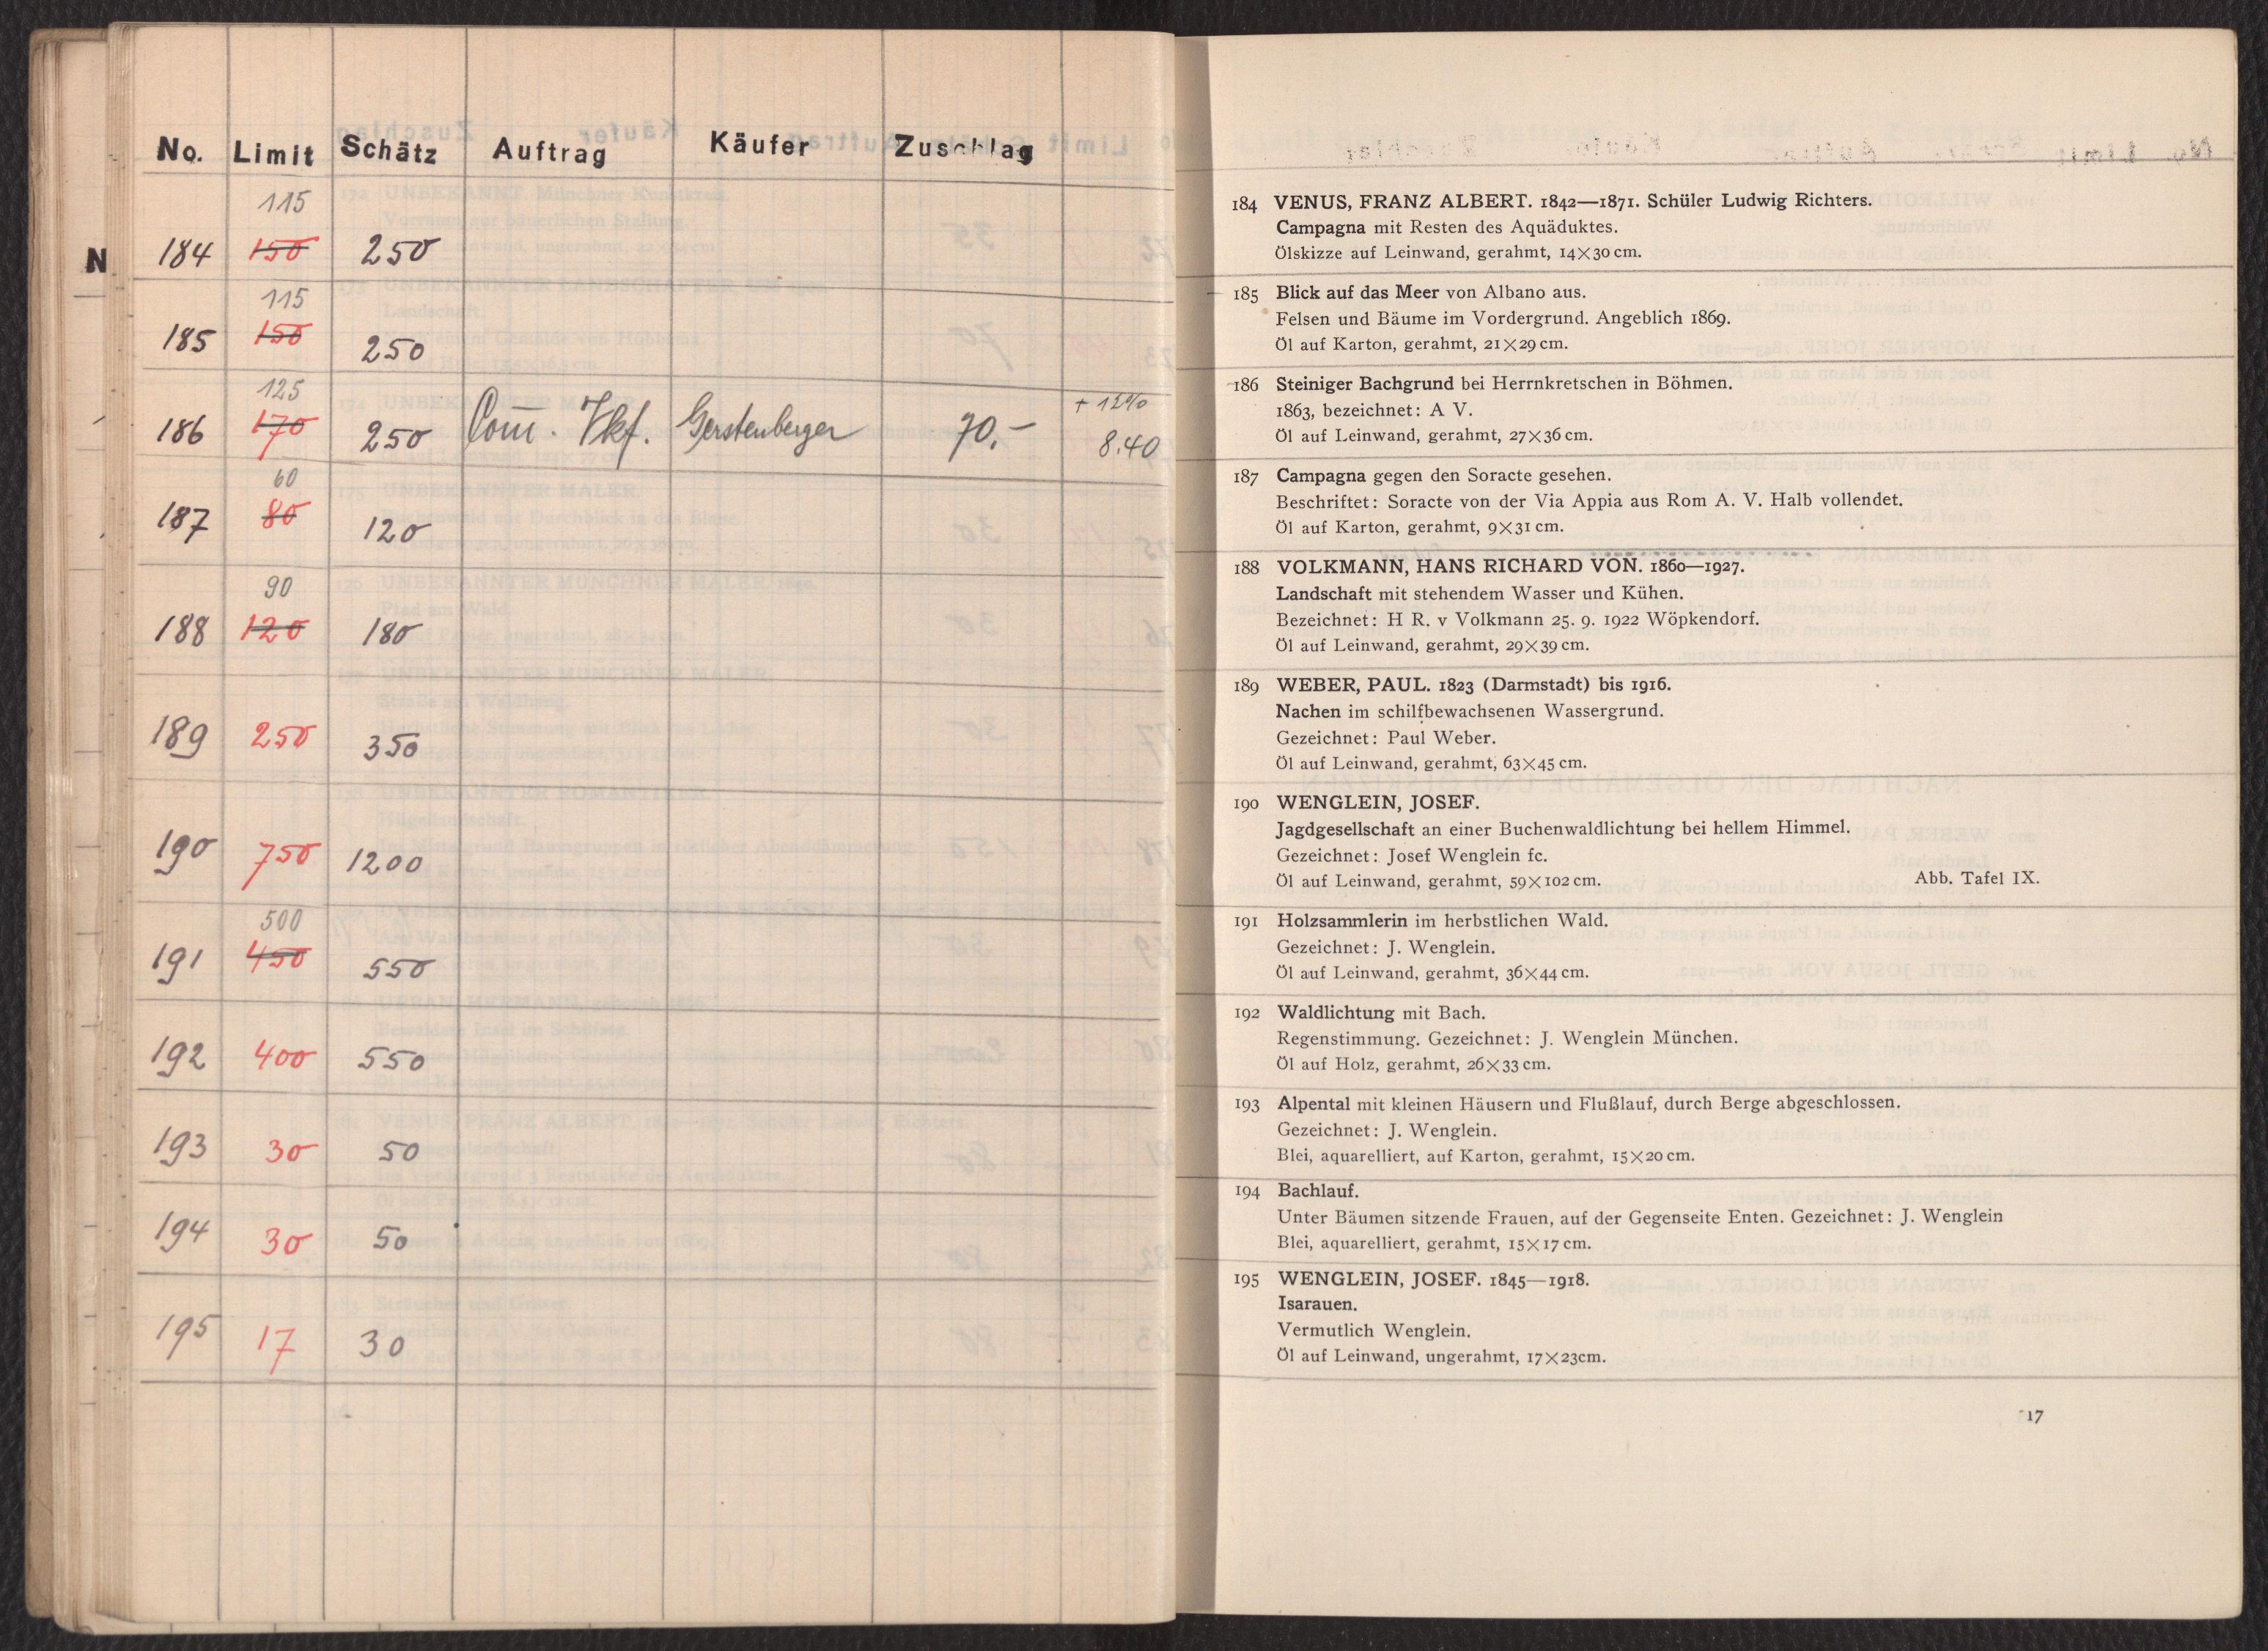 No. Limit Schätz Auftrag Käufer Zuschlag
N
115
184 150 250
115
185 150 250
125
186 170 250 Com. Vkf. Gerstenberger 70.- + 12% 8.40
60
187 80 120
90
188 120 180
189 250 350
190 750 1200
500
191 450 550
192 400 550
193 30 50
194 30 50
195 17 30
184 VENUS, FRANZ ALBERT. 1842—1871. Schüler Ludwig Richters.
Campagna mit Resten des Aquäduktes.
Ölskizze auf Leinwand, gerahmt, 14×30 cm.
185 Blick auf das Meer von Albano aus.
Felsen und Bäume im Vordergrund. Angeblich 1869.
Öl auf Karton, gerahmt, 21×29 cm.
186 Steiniger Bachgrund bei Herrnkretschen in Böhmen.
1863, bezeichnet: A V.
Öl auf Leinwand, gerahmt, 27×36 cm.
187 Campagna gegen den Soracte gesehen.
Beschriftet: Soracte von der Via Appia aus Rom A. V. Halb vollendet.
Öl auf Karton, gerahmt, 9×31 cm.
188 VOLKMANN, HANS RICHARD VON. 1860—1927.
Landschaft mit stehendem Wasser und Kühen.
Bezeichnet: H R. v Volkmann 25. 9. 1922 Wöpkendorf.
Öl auf Leinwand, gerahmt, 29×39 cm.
189 WEBER, PAUL. 1823 (Darmstadt) bis 1916.
Nachen im schilfbewachsenen Wassergrund.
Gezeichnet: Paul Weber.
Öl auf Leinwand, gerahmt, 63×45 cm.
190 WENGLEIN, JOSEF.
Jagdgesellschaft an einer Buchenwaldlichtung bei hellem Himmel.
Gezeichnet: Josef Wenglein fc.
Öl auf Leinwand, gerahmt, 59×102 cm. Abb. Tafel IX.
191 Holzsammlerin im herbstlichen Wald.
Gezeichnet: J. Wenglein.
Öl auf Leinwand, gerahmt, 36×44 cm.
192 Waldlichtung mit Bach.
Regenstimmung. Gezeichnet: J. Wenglein München.
Öl auf Holz, gerahmt, 26×33 cm.
193 Alpental mit kleinen Häusern und Flußlauf, durch Berge abgeschlossen.
Gezeichnet: J. Wenglein.
Blei, aquarelliert, auf Karton, gerahmt, 15×20 cm.
194 Bachlauf.
Unter Bäumen sitzende Frauen, auf der Gegenseite Enten. Gezeichnet: J. Wenglein
Blei, aquarelliert, gerahmt, 15×17 cm.
195 WENGLEIN, JOSEF. 1845—1918.
Isarauen.
Vermutlich Wenglein.
Öl auf Leinwand, ungerahmt, 17×23cm.
17